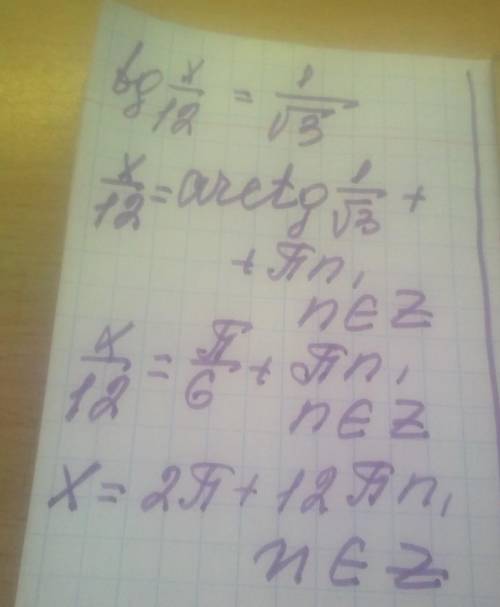 tg x/12 = 1/√3
x/12 = arctg 1/√3 +
+ πn,
n ∈ Z
x/12 = π/6 + πn,
n ∈ Z
x = 2π + 12πn,
n ∈ Z